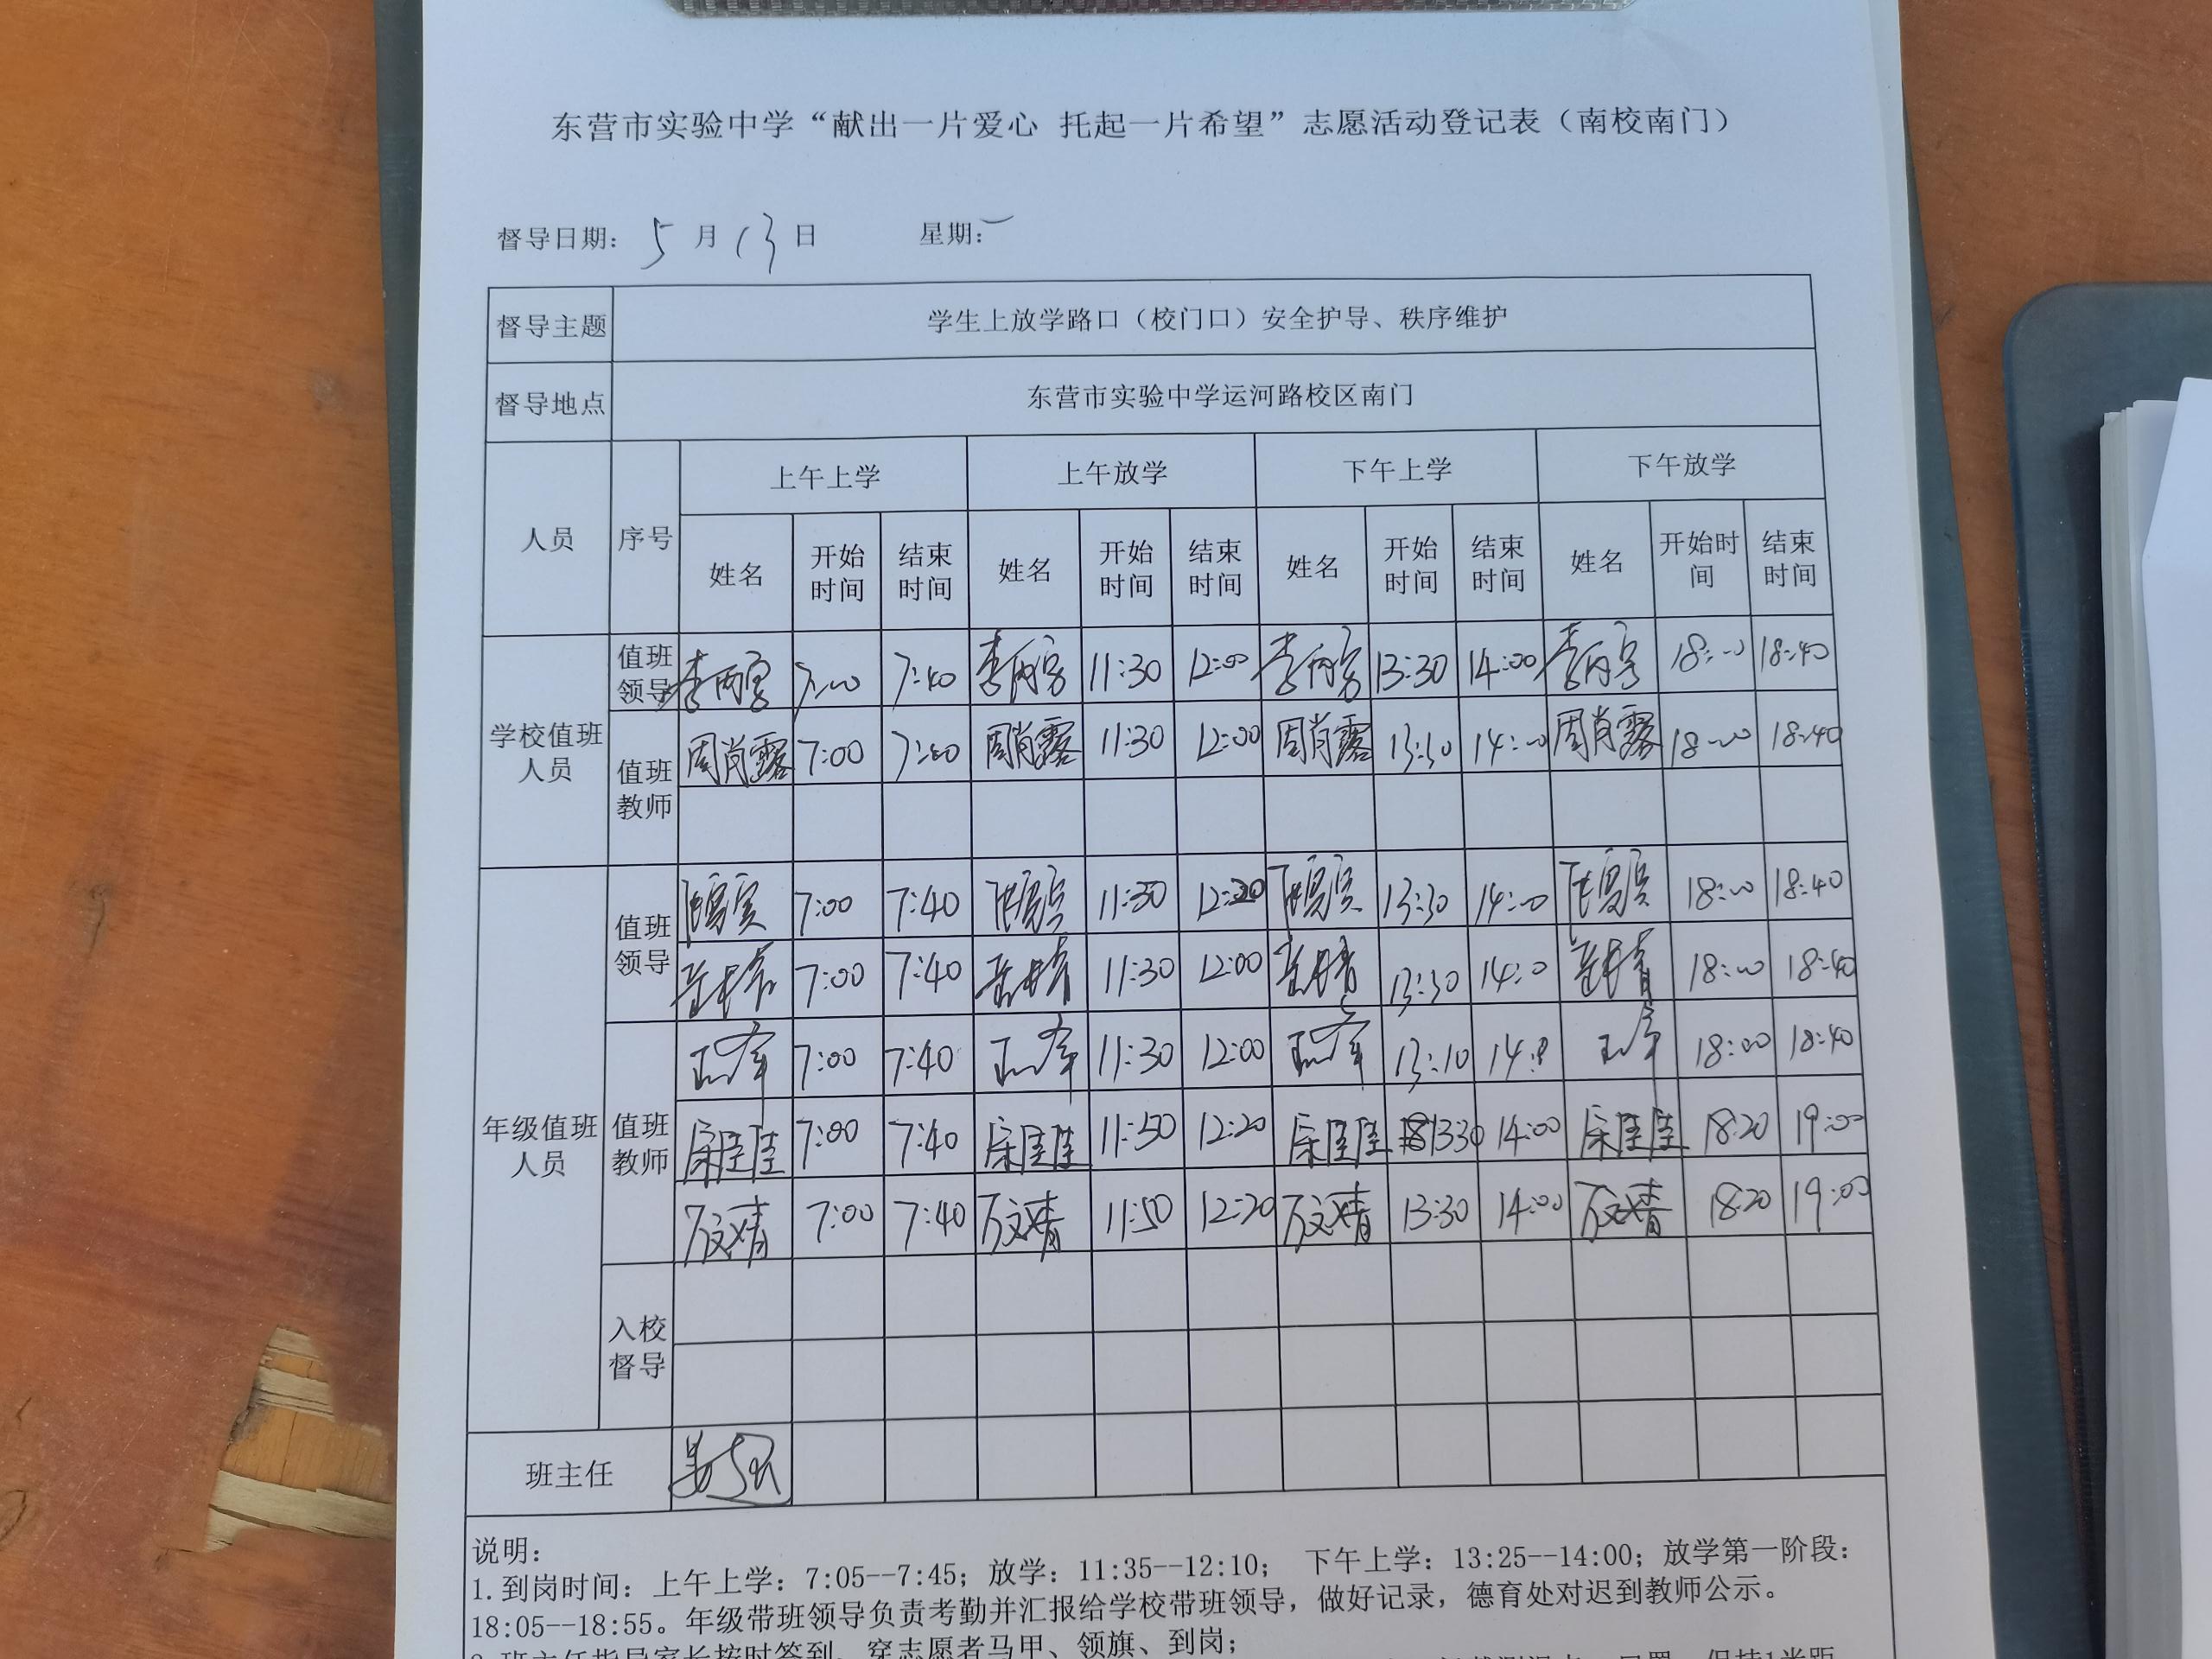 东营市实验中学“献出一片爱心 托起一片希望”志愿活动登记表（南校南门）
督导日期： 5 月 13 日 星期：一
督导主题 学生上放学路口（校门口）安全护导、秩序维护
督导地点 东营市实验中学运河路校区南门
人员 序号 上午上学 上午放学 下午上学 下午放学
姓名 开始时间 结束时间 姓名 开始时间 结束时间 姓名 开始时间 结束时间 姓名 开始时间 结束时间
学校值班人员 值班领导 7:00 7:40 11:30 12:00 13:30 14:00 18:00 18:40
值班教师 周肖露 7:00 7:40 周肖露 11:30 12:00 周肖露 13:30 14:00 周肖露 18:00 18:40
年级值班人员 值班领导 7:00 7:40 11:30 13:30 14:00 18:00 18:40
7:00 7:40 11:30 12:00 13:30 14:00 18:00 18:40
值班教师 7:00 7:40 11:30 12:00 18:00 18:40
宋佳佳 7:00 7:40 宋佳佳 11:50 12:20 宋佳佳 13:30 14:00 宋佳佳 18:20 19:00
万文靖 7:00 7:40 万文靖 11:50 12:20 万文靖 13:30 14:00 万文靖 18:20 19:00
入校督导
班主任
说明：
1.到岗时间：上午上学：7:05--7:45；放学：11:35--12:10； 下午上学：13:25--14:00；放学第一阶段：
18:05--18:55。年级带班领导负责考勤并汇报给学校带班领导，做好记录，德育处对迟到教师公示。
班主任指导家长按时签到、穿志愿者马甲、领旗、到岗；